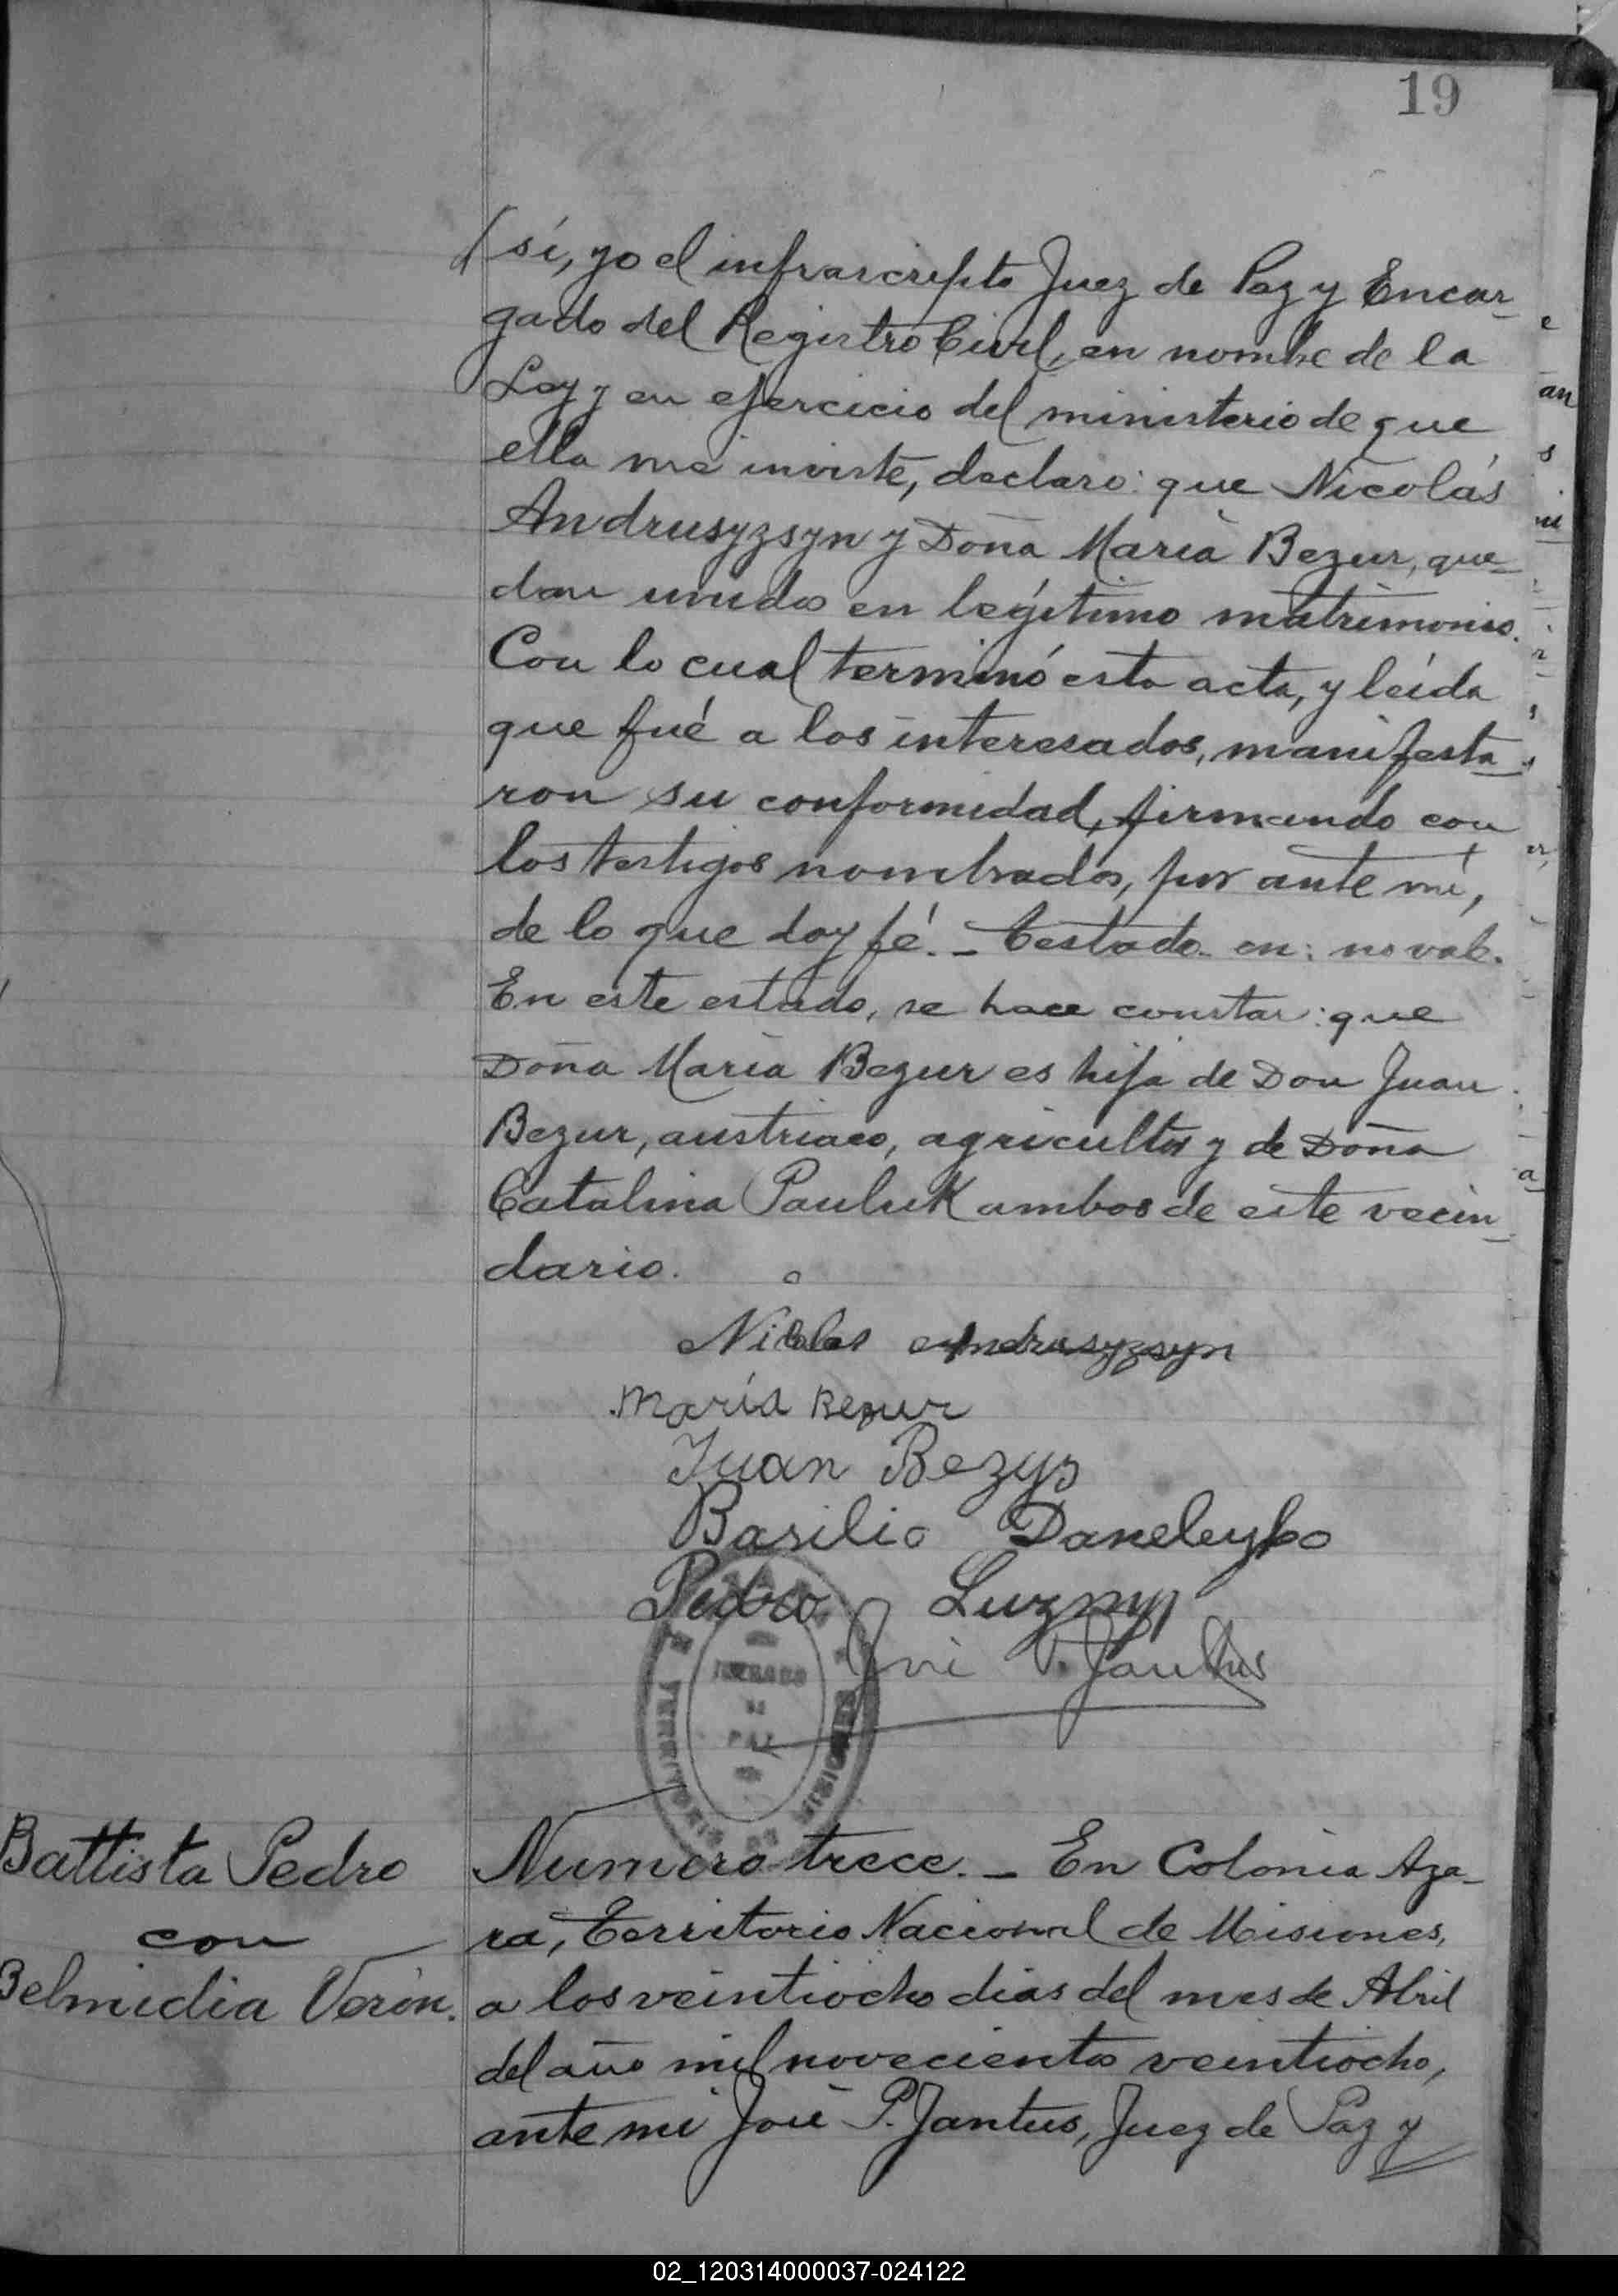 19
sí, yo el infrascripto Juez de Paz y Encar-
gado del Registro Civil, en nombre de la
Ley y en ejercicio del ministerio de que
ella me inviste, declaro: que Nicolás
Andrusyzsyn y Doña María Bezur, que-
dan unidos en legítimo matrimonio.
Con lo cual terminó esta acta, y leída
que fué a los interesados, manifesta-
ron su conformidad, firmando con
los testigos nombrados, por ante mí,
de lo que doy fé. - Testado - en: no vale.
En este estado, se hace constar: que
Doña María Bezur es hija de Don Juan
Bezur, austriaco, agricultor y de Doña
Catalina Pauluk ambos de este vecin-
dario.
Nicolas Andrusyzsyn
María Bezur
Juan Bezys
Basilio
Pedro Luzny
José P. Jantus
JUZGADO
DE
PAZ
TERRITORIO DE MISIONES
Battista Pedro
con
Belmidia Verón.
Numero trece. - En Colonia Aza-
ra, Territorio Nacional de Misiones,
a los veintiocho dias del mes de Abril
del año mil novecientos veintiocho,
ante mi José P. Jantus, Juez de Paz y
02_120314000037-024122